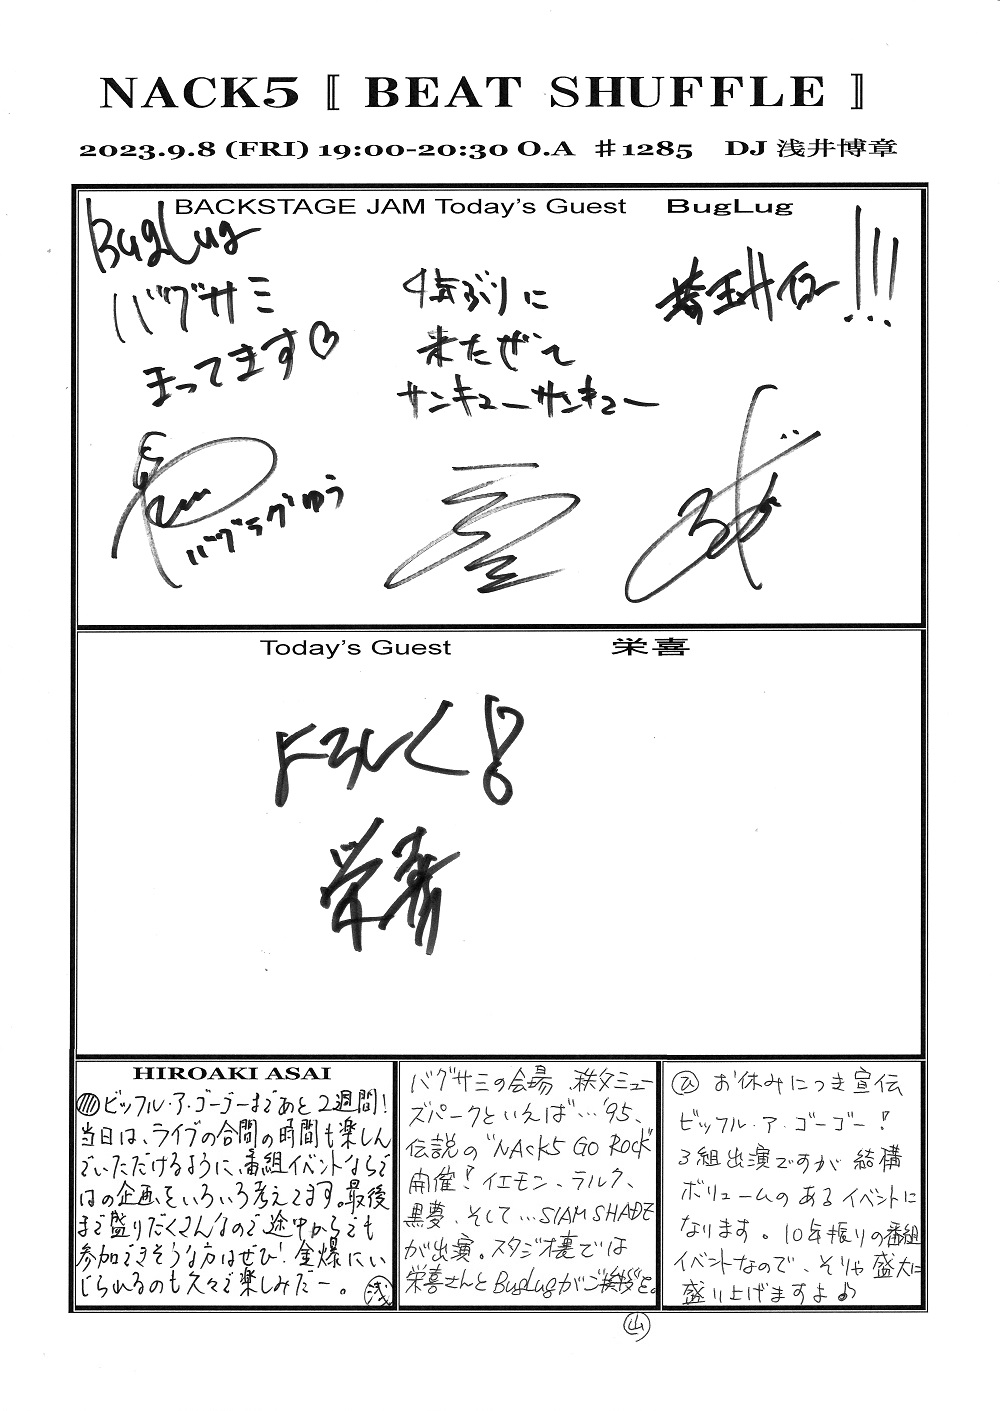 NACK5 〚 BEAT SHUFFLE 〛
2023.9.8 (FRI) 19:00-20:30 O.A ♯1285 DJ 浅井博章
BACKSTAGE JAM Today's Guest BugLug
BugLug
バグサミ
まってます♡
バグラグゆう
4年ぶりに
来たぜて
サンキューサンキュー
埼玉サイコー!!!
Today's Guest 栄喜
よろしく!
栄喜
HIROAKI ASAI
ビッフル・ア・ゴーゴーまであと2週間!
当日は、ライブの合間の時間も楽しん
でいただけるように、番組イベントならで
はの企画をいろいろ考えてます。最後
まで盛りだくさんなので途中からでも
参加できそうな方はぜひ!金爆にい
じられるのも久々で楽しみだー。 浅
バグサミの会場 秩父ミュー
ズパークといえば…'95、
伝説の"NACK5 GO ROCK"
開催!イエモン、ラルク、
黒夢、そして…SIAM SHADE
が出演。スタジオ裏では
栄喜さんとBugLugがご挨拶を。
山
ひ お休みにつき宣伝
ビッフル・ア・ゴーゴー!
3組出演ですが 結構
ボリュームのあるイベントに
なります。10年振りの番組
イベントなので、そりゃ盛大に
盛り上げますよ♪